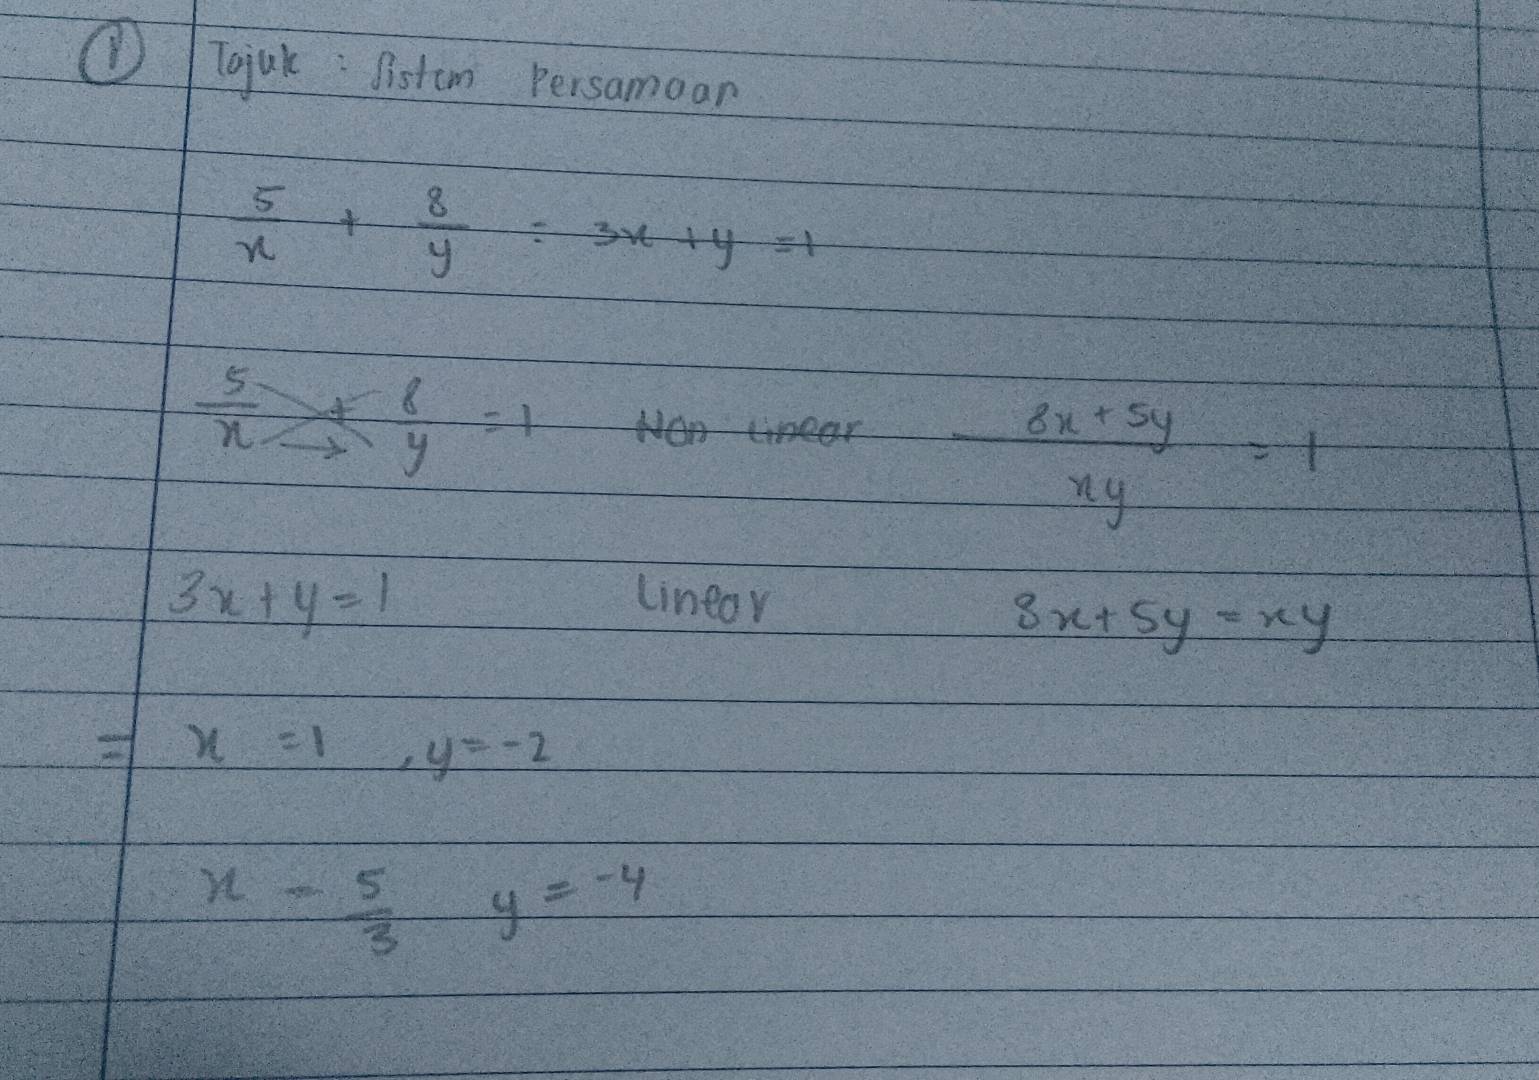 ① Tajuk : Sistem Persamaan
5/x + 8/y = 3x + y = 1
5/x + 8/y = 1 Non Linear (8x + 5y)/xy = 1
3x + y = 1 Linear 8x + 5y = xy
= x = 1 , y = -2
x = 5/3 y = -4